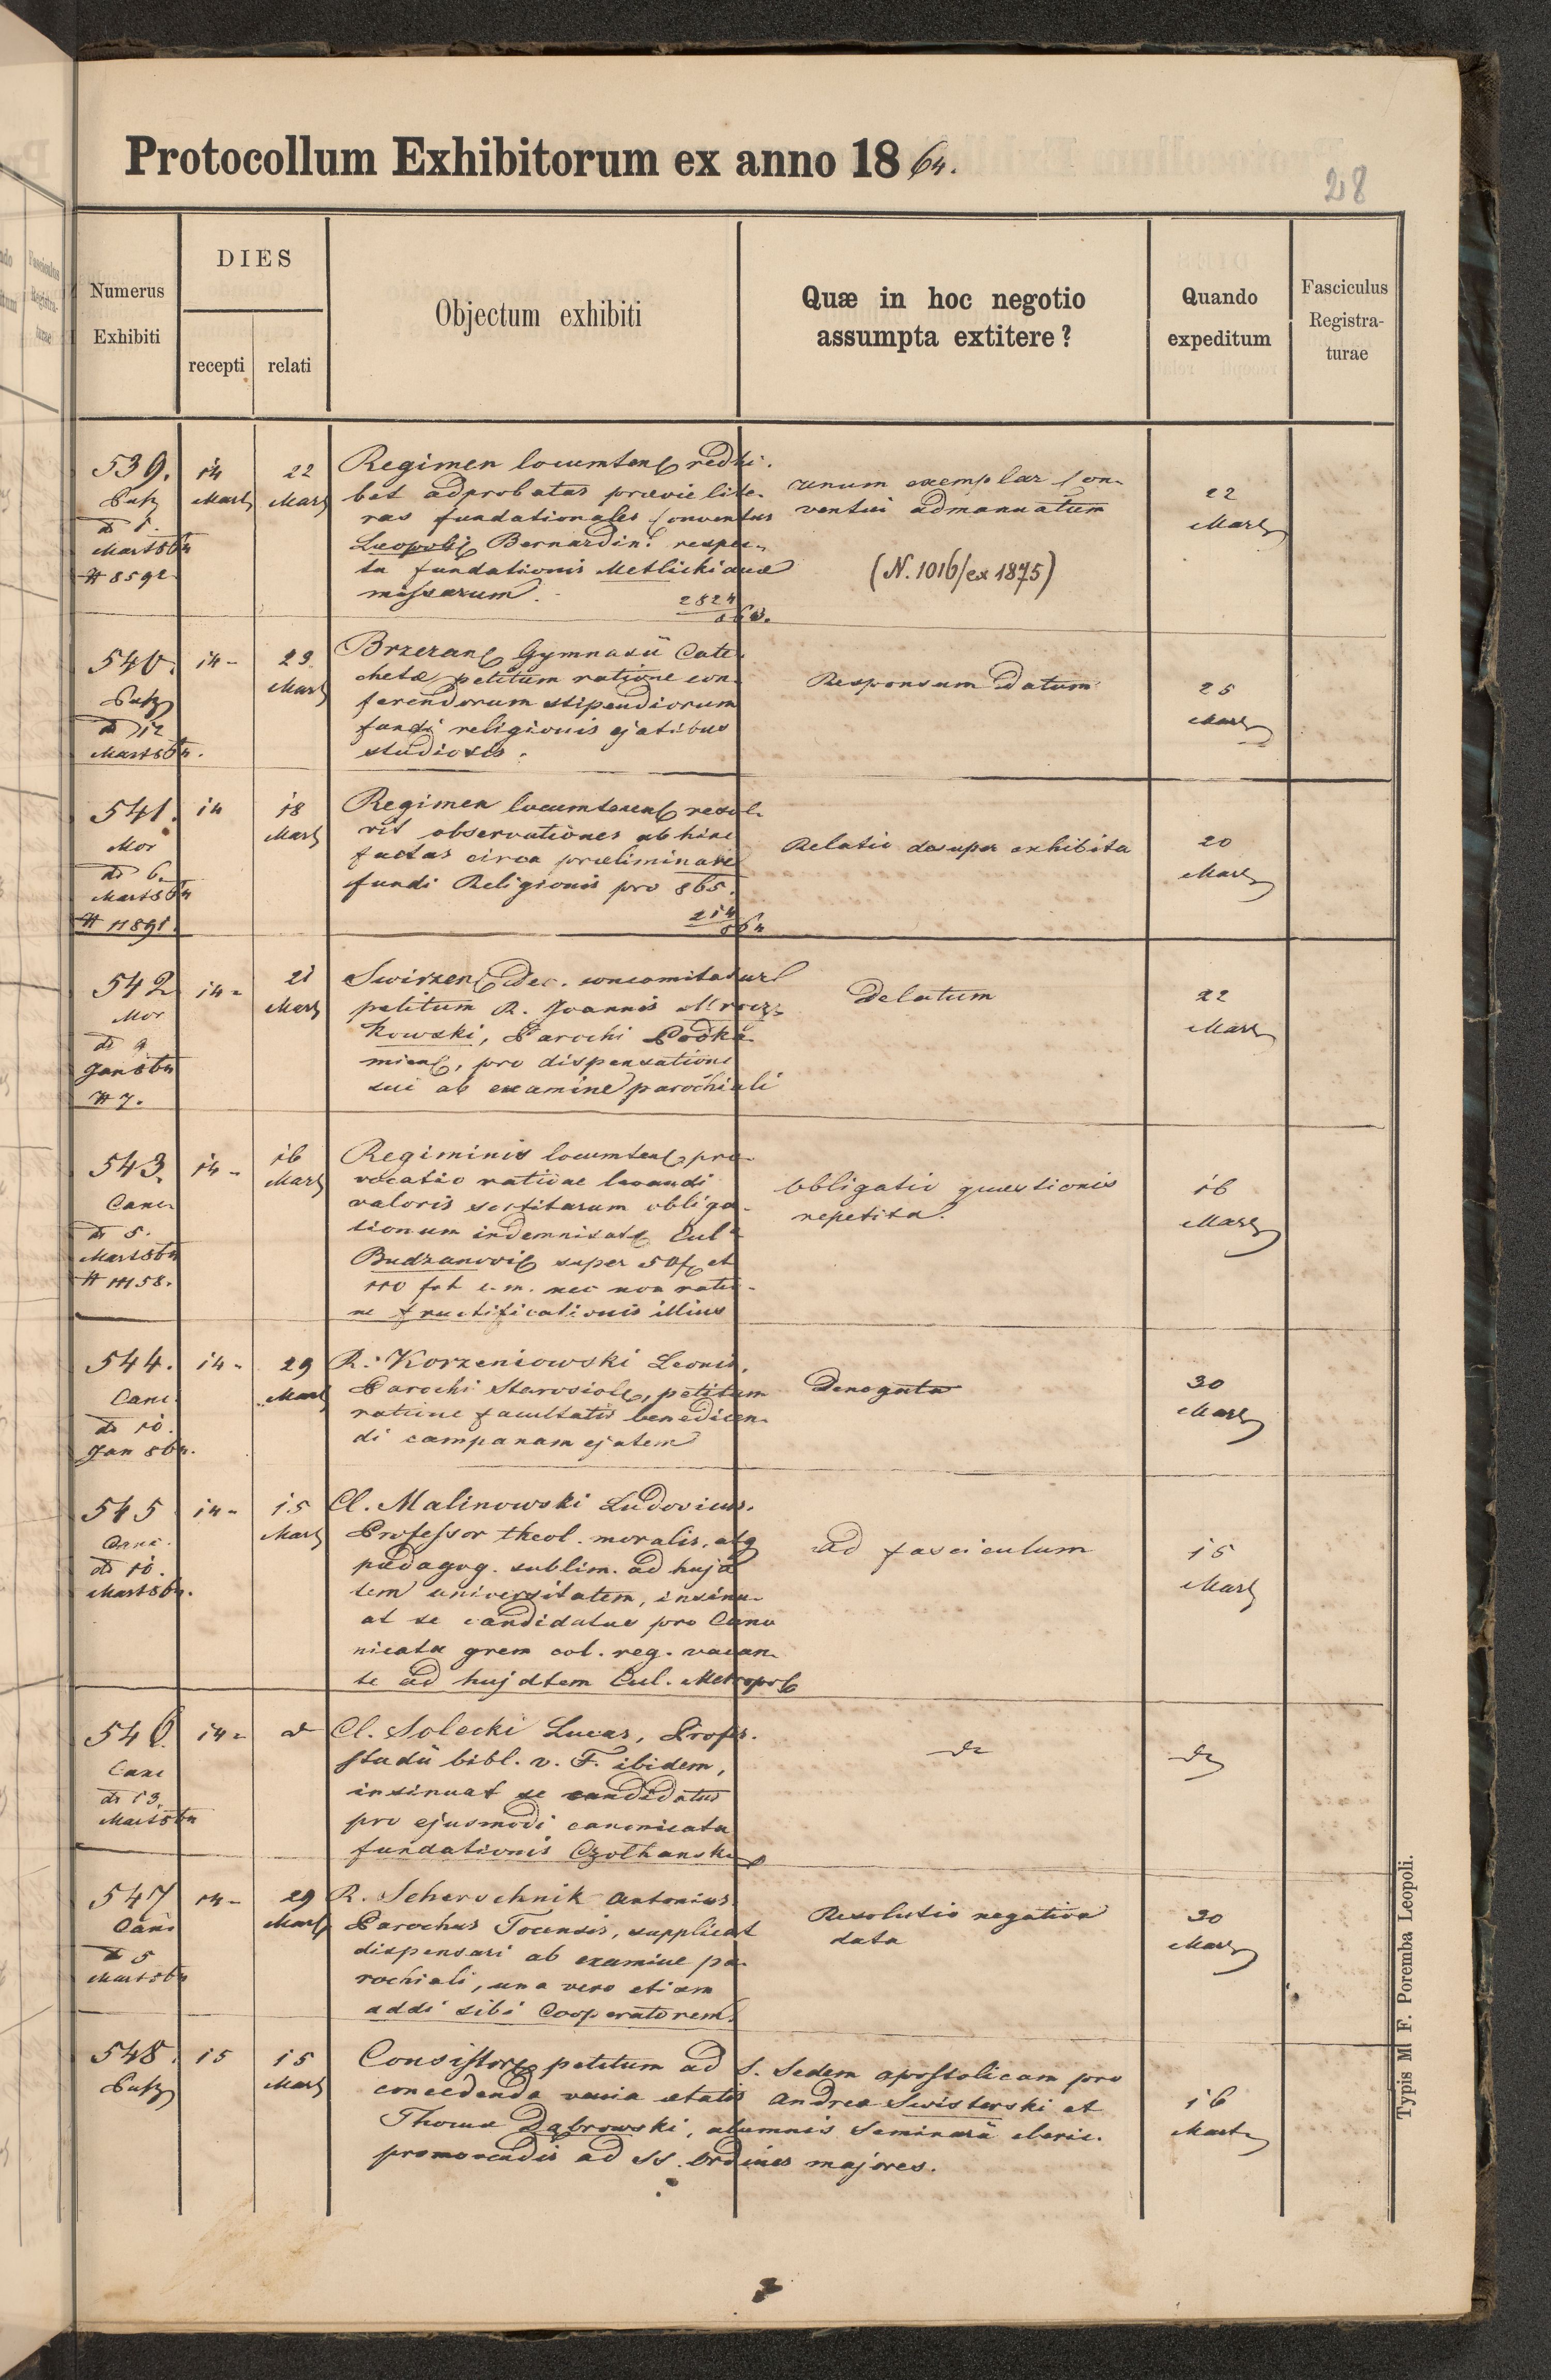 Protocollum Exhibitorum ex anno 18 64.
28
Numerus
Exhibiti
DIES
recepti
relati
Objectum exhibiti
Quæ in hoc negotio
assumpta extitere?
Quando
expeditum
Fasciculus
Registra-
turae
539.
14
Mart
22
Mart
Regimen locumten redhi-
bet adprobatas prævie lite-
ras fundationales Conventus
Leopoli Bernardin. respec-
tu fundationis Metlickianæ
missarum.
2824
863.
unum exemplar Con-
ventui admanuatum
(N. 1016/ex 1875)
22
Mart
1.
Mart 864
# 8592
540.
14-
23
Mart
Brzezan Gymnasii Cate-
chetæ petitum ratione con-
ferendorum stipendiorum
fundi religionis ejatibus
studiosis.
Responsum datum
25
Mart
12
Mart 864.
541.
14
18
Mart
Mor
6.
Mart 864
# 11891
Regimen locumtenen resol-
vit observationes ab hinc
factas circa præliminare
fundi Religionis pro 865.
214
864
Relatio desuper exhibita
20
Mart
542
14-
21
Mart
Mor
9
Jan 864
# 7.
Swirzen Dec. concomitatur
petitum R. Joannis Mrocz-
kowski, Parochi Podka-
mien, pro dispensatione
sui ab examine parochiali
Delatum
22
Mart
543.
14-
16
Mart
Canc
5.
Mart 864
# 11158.
Regiminis locumten pro-
vocatio ratione levandi
valoris sortitarum obliga-
tionum indemnisat Eccl
Budzanovi super 50 f et
110 f c. m. nec non ratio-
ne fructificationis illius
Obligatio quæstionis
repetita.
16
Mart
544.
14-
29
Mart
Canc.
10.
Jan 864.
R. Korzeniowski Leonis,
Parochi Starosiol, petitum
ratione facultatis benedicen-
di campanam ejatem
Denegata
30
Mart
545
14-
15
Mart
Canc.
10.
Mart 864.
Cl. Malinowski Ludovicus.
Professor theol. moralis, atq
pædagog. sublim. ad huja
tem universitatem, insinu-
at se candidatus pro Cano
nicatu grem col. reg. vacan-
te ad hujatem Eccl. Metropol
ad fasciculum
15
Mart
546.
14-
Canc
13.
Mart 864
Cl. Solecki Lucas, Profes.
studii bibl. v. F. ibidem,
insinuat se candidatus
pro ejusmodi canonicatu
fundationis Czolhanski
547
14-
29
Mart
Canc
5
Mart 864
R. Scherschnik Antonius
Parochus Tocensis, supplicat
dispensari ab examine pa-
rochiali, una vero etiam
addi sibi Cooperatorem.
Resolutio negativa
data
30
Mart
548.
15
15
Mart
Consistor petitum ad S. Sedem apostolicam pro
concedenda venia etatis Andrea Swisterski et
Thoma Dąbrowski, alumnis Seminarii cleric.
promovendis ad SS. Ordines majores.
16
Mart
Typis M F. Poremba Leopoli.